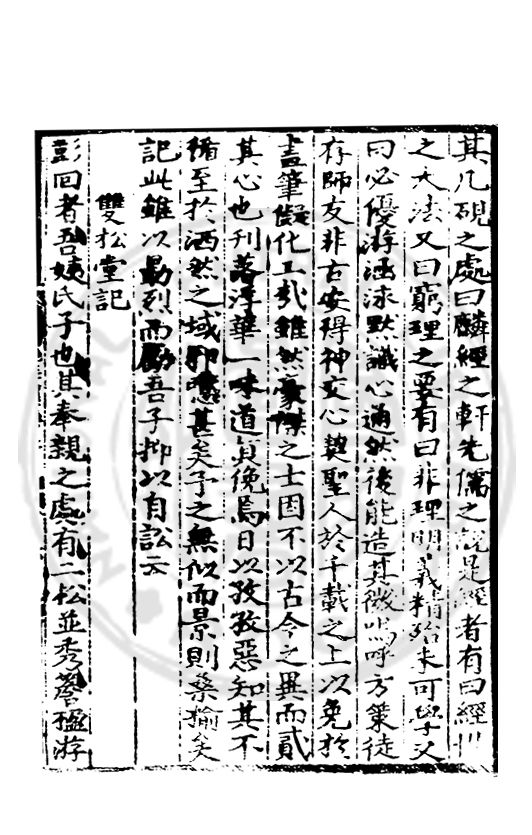 其几硯之處曰麟經之軒先儒之說是經者有曰經
之大法又曰窮理之要有曰非理明義精殆未可學又
曰必優游涵泳默識心通然後能造其微嗚呼方策徒
存師友非古安得神交心契聖人於千載之上以免於
畫筆儗化工哉雖然豪傑之士固不以古今之異而貳
其心也刊落浮華一味道真俛焉日以孜孜惡知其不
循至於洒然之域耶噫甚矣予之無似而景則桑揄矣
記此雖以勗烈而勵吾子抑以自訟云
雙松堂記
彭回者吾姨氏子也其奉親之處有二松並秀簷楹游